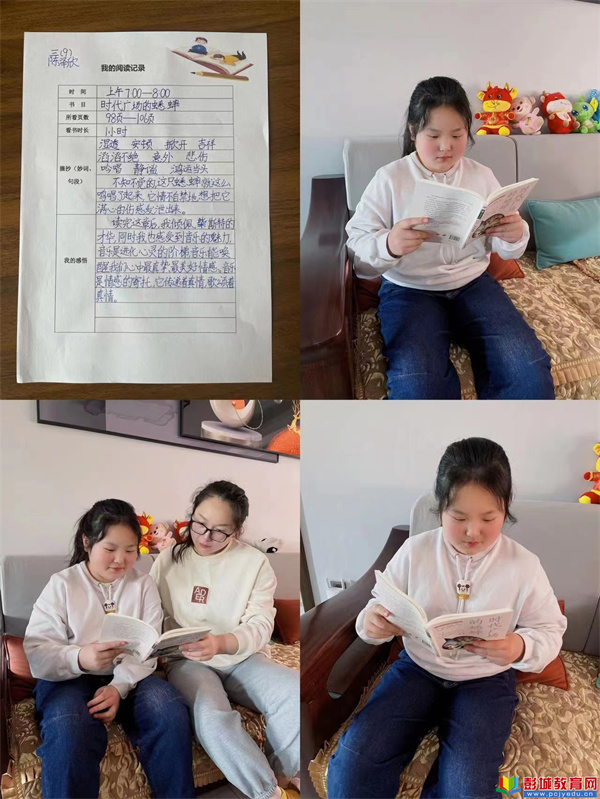 三(9)
陈泽欣
我的阅读记录
时 间 上午7:00—8:00
书 目 时代广场的蟋蟀
所看页数 98页—106页
看书时长 1小时
摘抄(妙词、句段)
湿透 安顿 掀开 吉祥
滔滔不绝 意外 悲伤
吟唱 静谧 鸿运当头
不知不觉的这只蟋蟀就这么
鸣唱了起来,它情不自禁地想把它
满心的伤感发泄出来。
我的感悟
读完这章后,我佩服柴斯特的
才华,同时我也感受到音乐的魅力,
音乐是进化心灵的阶梯,音乐能唤
醒我们心中最真挚、最美好情感。音乐
是情感的寄托,它传递着真情,歌颂着
真情。
AD
ER
时代广场
的蟋蟀
彭城教育网
www.pcjyedu.cn